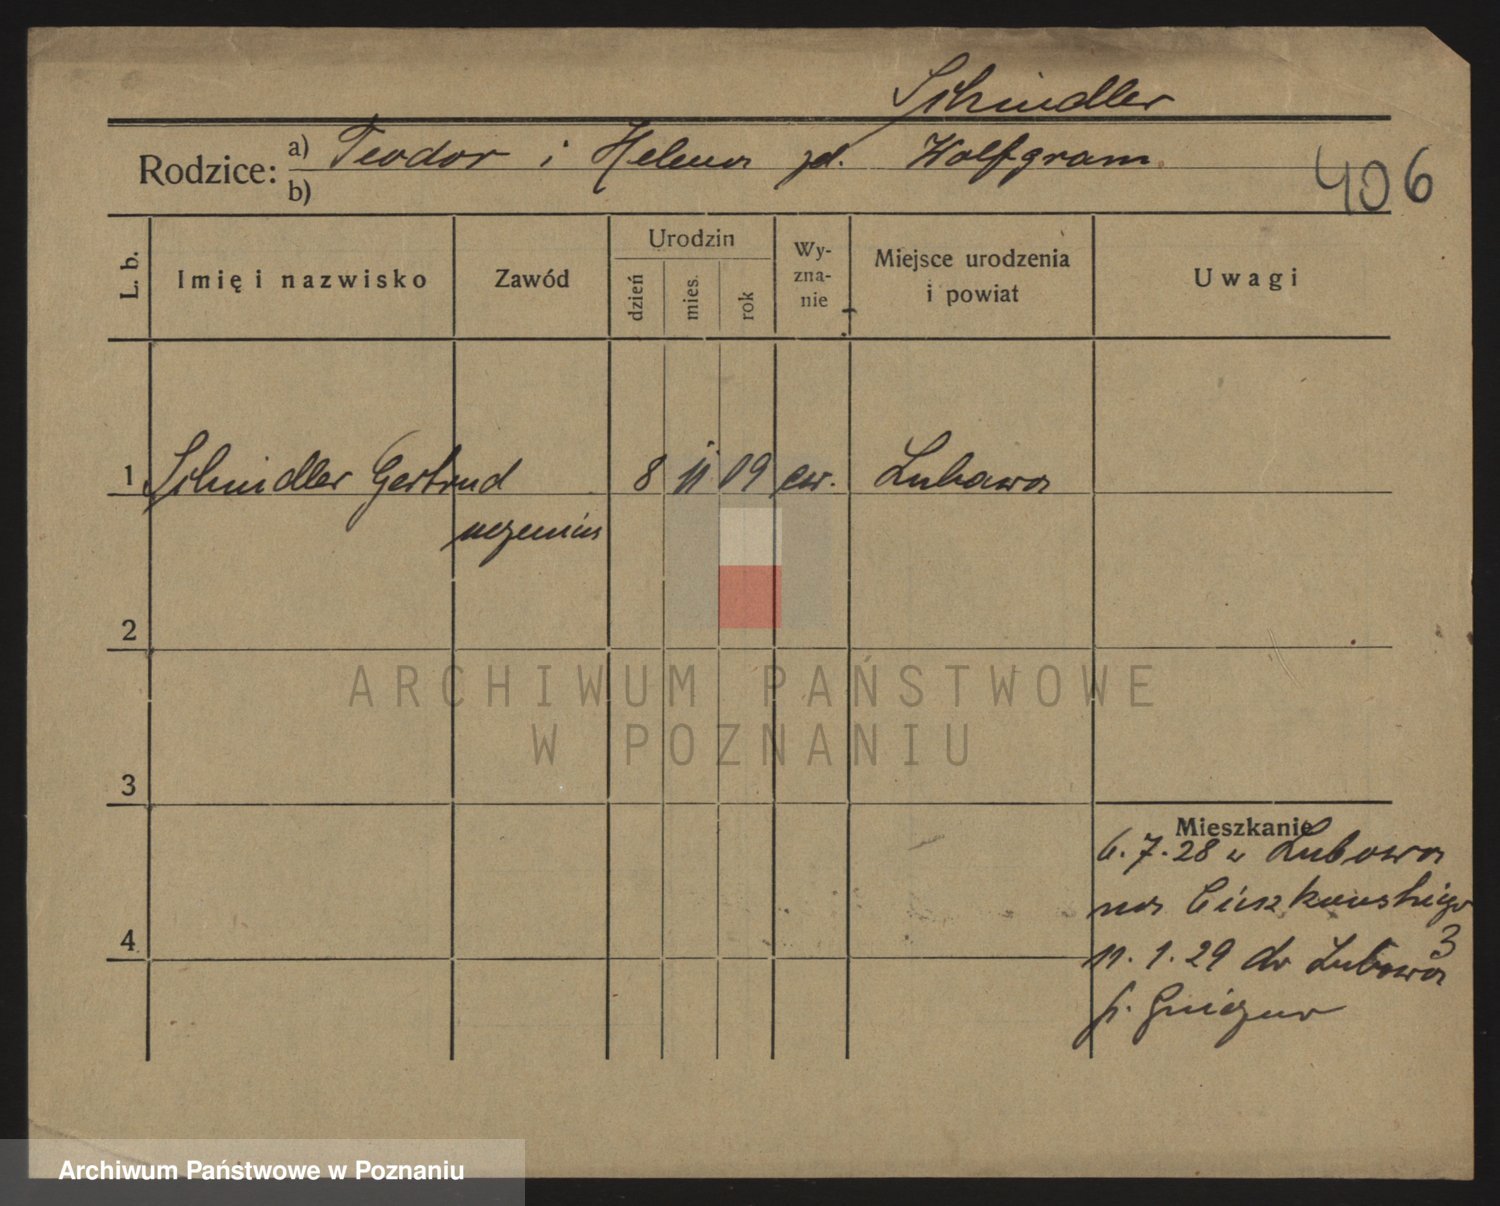 Schindler
Rodzice: a) Teodor i Helena zd. Wolfgram
b)
406
L. b. Imię i nazwisko Zawód Urodzin dzień mies. rok Wy-zna-nie Miejsce urodzenia i powiat Uwagi
1 Schindler Gertrud 8 11 09 ew. Lubawa
uczenica
2
3
Mieszkanie
6.7.28 z Lubowa
na Cieszkowskiego
3
4
11.1.29 do Lubowa
p. Gniezno
ARCHIWUM PAŃSTWOWE
W POZNANIU
Archiwum Państwowe w Poznaniu